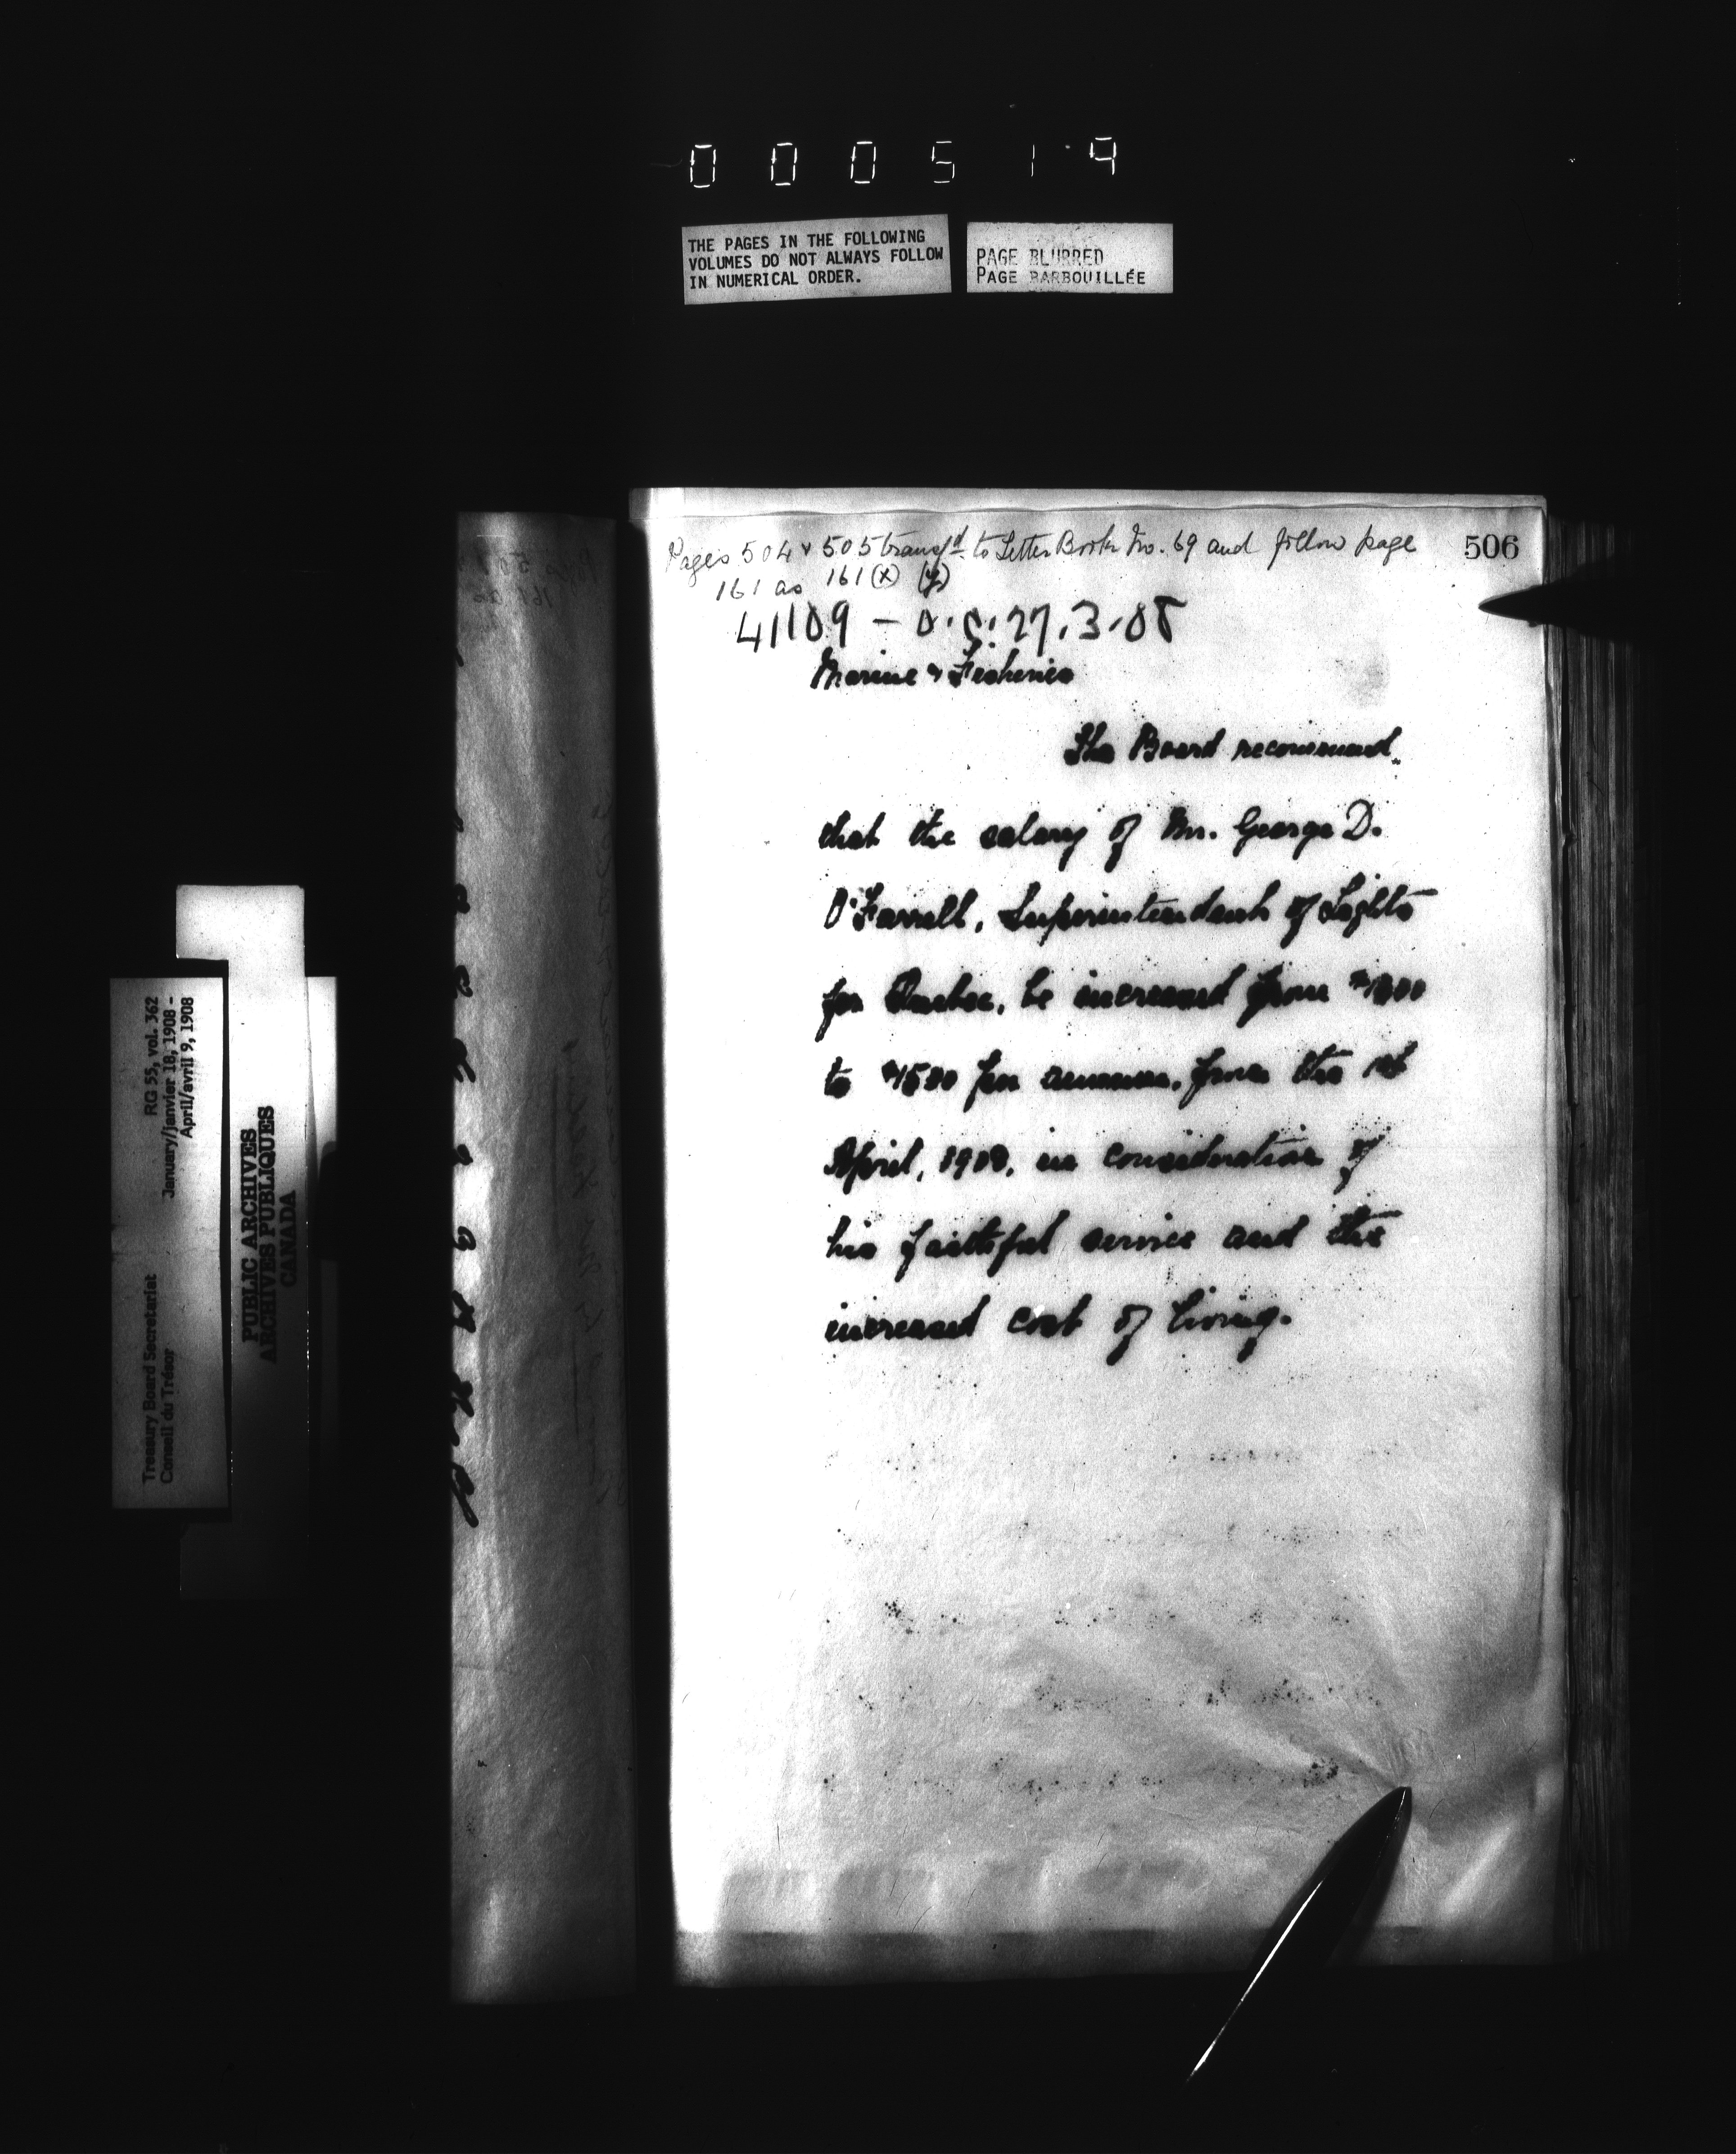 000519
THE PAGES IN THE FOLLOWING
VOLUMES DO NOT ALWAYS FOLLOW
IN NUMERICAL ORDER.
PAGE BLURRED
PAGE BARBOUILLÉE
506
Pages 504 & 505 transfd. to Letter Book No. 69 and follow page
161 as 161 (x) (y)
41109 – O.C. 27.3.08
Marine & Fisheries
The Board recommend
that the salary of Mr. George D.
O'Farrell, Superintendent of Lights
for Quebec, be increased from
to $1500 per annum, from the 1st
April, 1908, in consideration of
his faithful service and the
increased cost of living.
Treasury Board Secretariat RG 55, vol. 362
Conseil du Trésor January/janvier 18, 1908 -
April/avril 9, 1908
PUBLIC ARCHIVES
ARCHIVES PUBLIQUES
CANADA